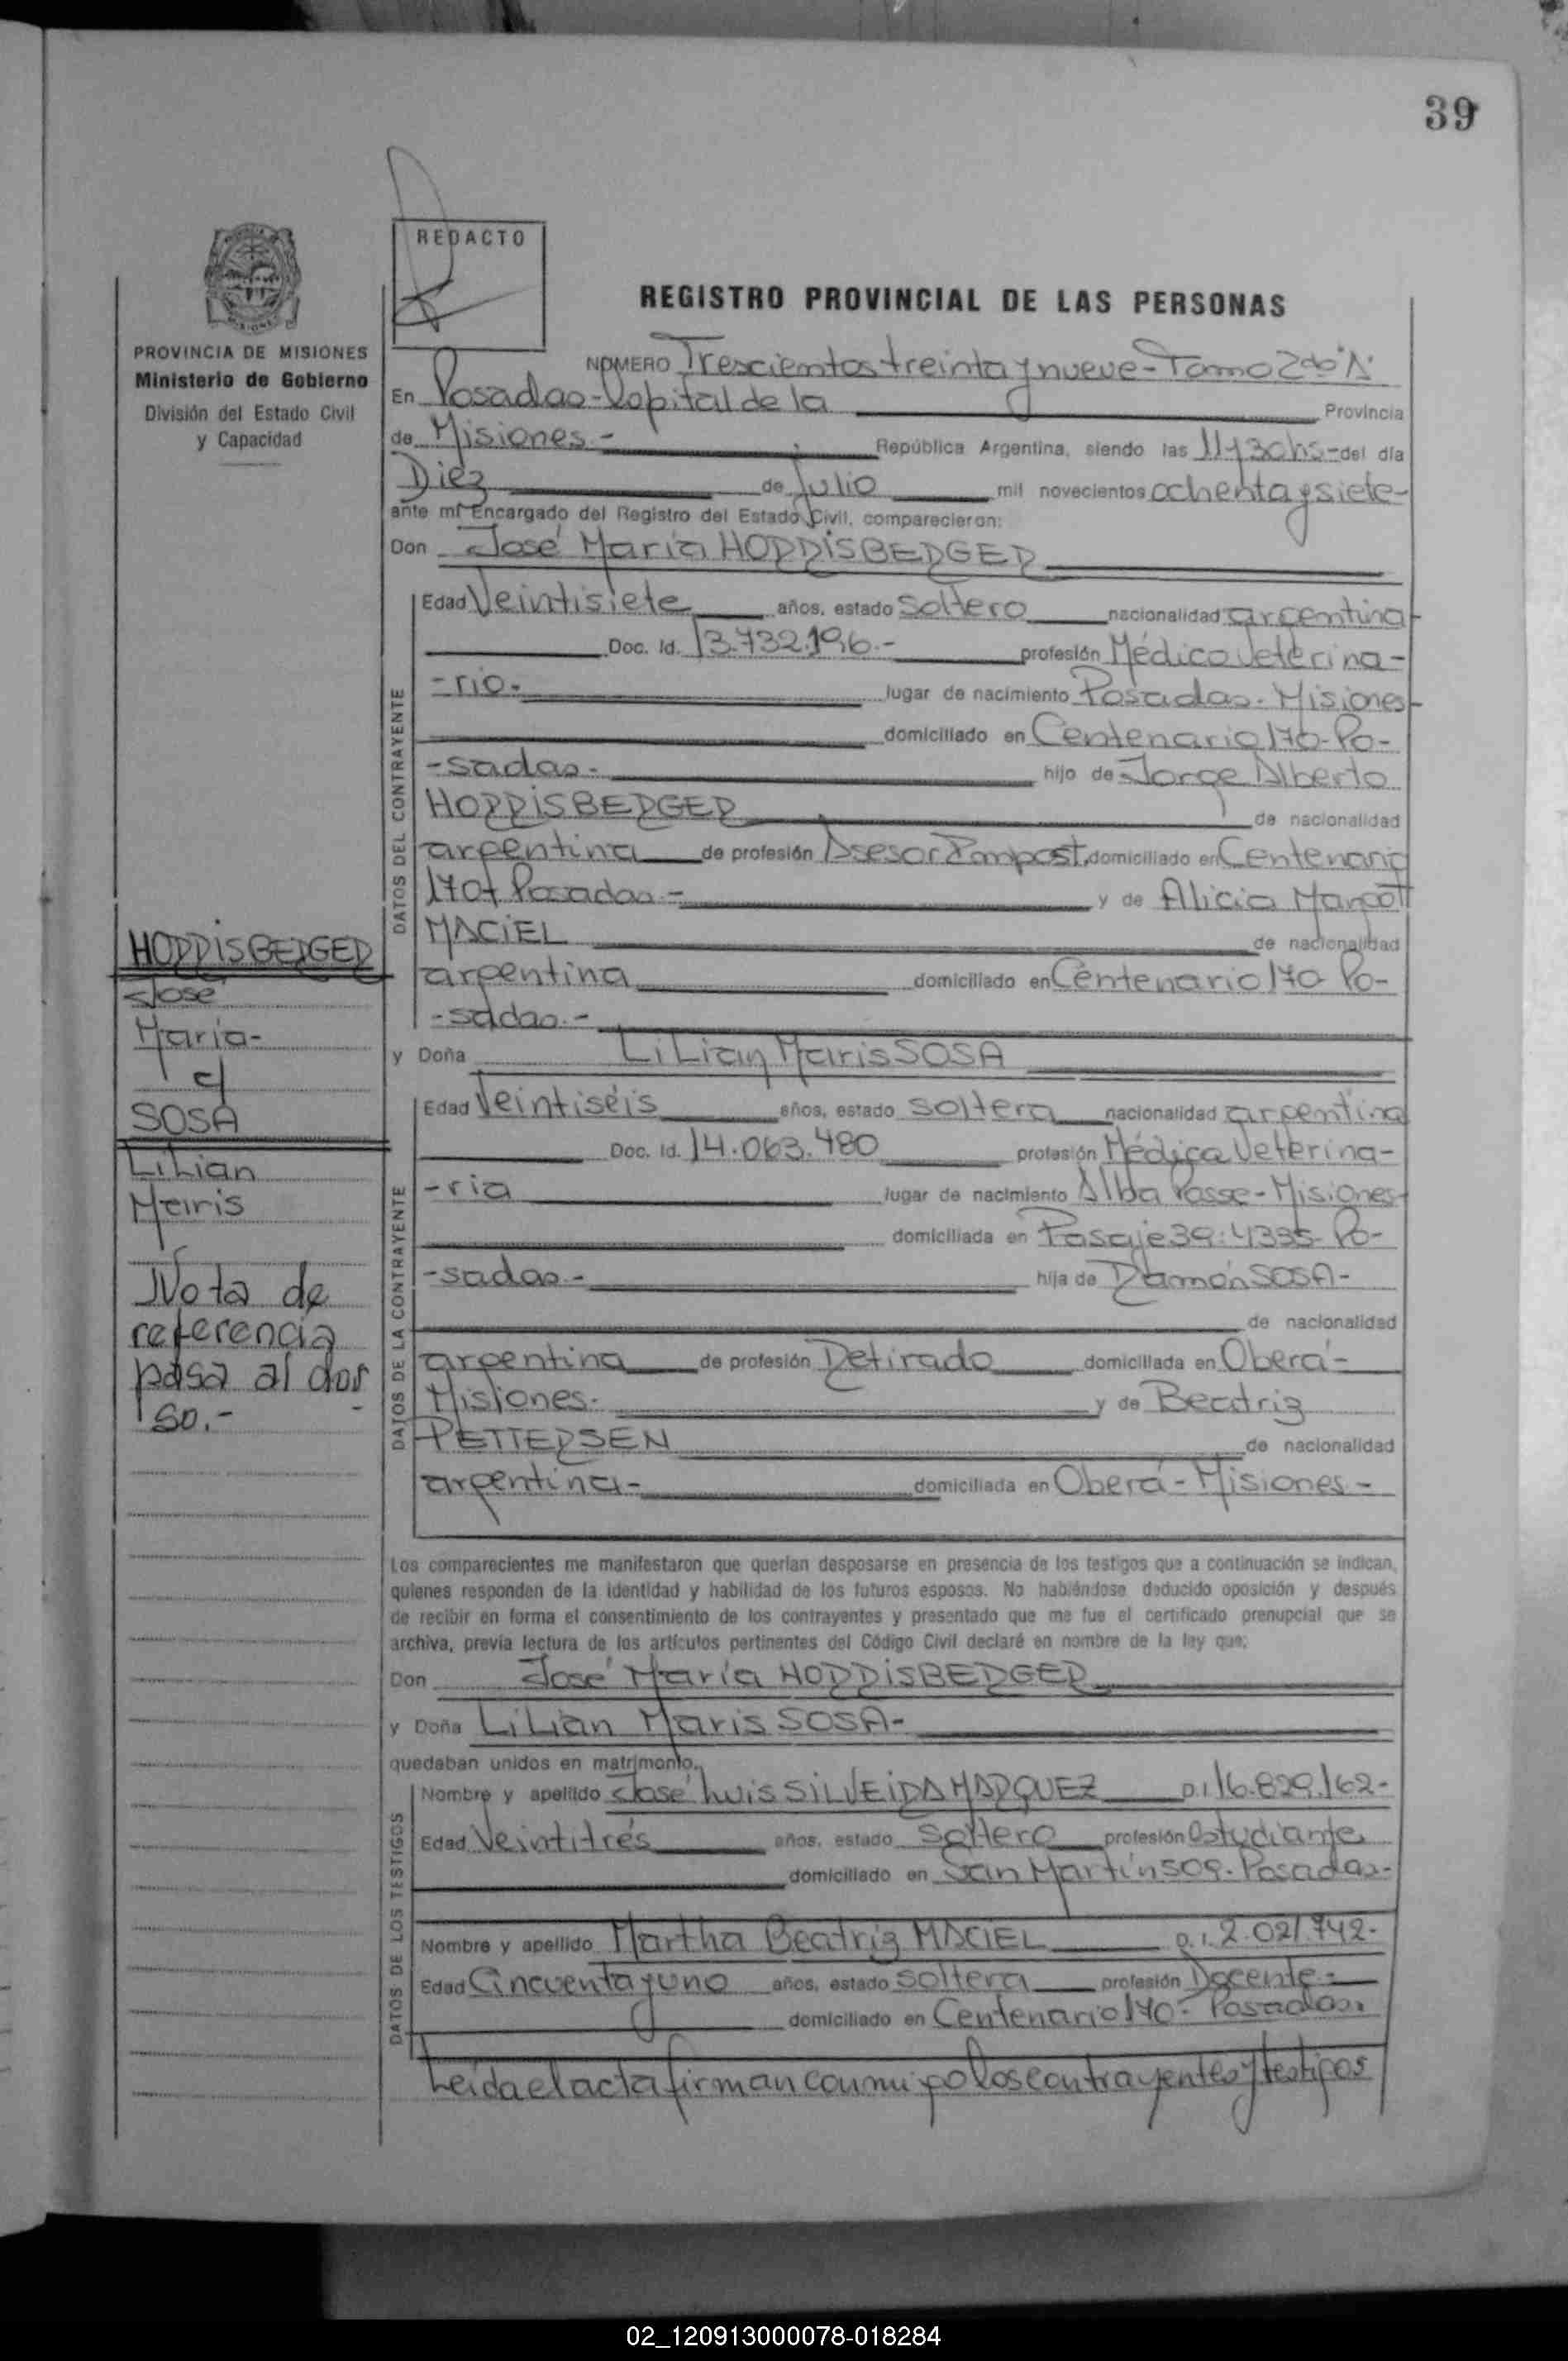 39
REDACTO
REGISTRO PROVINCIAL DE LAS PERSONAS
PROVINCIA DE MISIONES
Ministerio de Gobierno
División del Estado Civil
y Capacidad
NUMERO Trescientos treinta y nueve - Tomo 2do "A"
En Posadas - Capital de la Provincia
de Misiones.- República Argentina, siendo las 11 y 30 hs - del día
Diez de Julio mil novecientos ochenta y siete -
ante mí Encargado del Registro del Estado Civil, comparecieron:
Don José María HORRISBERGER
DATOS DEL CONTRAYENTE
Edad Veintisiete años, estado soltero nacionalidad argentina -
Doc. Id. 13.732.196.- profesión Médico Veterina-
-rio- lugar de nacimiento Posadas - Misiones -
domiciliado en Centenario 170 - Po-
-sadas - hijo de Jorge Alberto
HORRISBERGER de nacionalidad
argentina de profesión Asesor domiciliado en Centenario
170 Posadas - y de Alicia Margot
MACIEL de nacionalidad
argentina domiciliado en Centenario 170 Po-
-sadas.-
y Doña Lilian Maris SOSA
DATOS DE LA CONTRAYENTE
Edad Veintiséis años, estado soltera nacionalidad argentina
Doc. Id. 14.063.480 profesión Médica Veterina-
-ria lugar de nacimiento Alba Posse - Misiones -
domiciliada en Pasaje 39: 4335 - Po-
-sadas - hija de Ramón SOSA -
de nacionalidad
argentina de profesión Retirado domiciliada en Oberá -
Misiones - y de Beatriz
PETTERSEN de nacionalidad
argentina - domiciliada en Oberá - Misiones -
HORRISBERGER
José
María -
c/
SOSA
Lilian
Maris
Nota de
referencia
pasa al dor
so.-
Los comparecientes me manifestaron que querían desposarse en presencia de los testigos que a continuación se indican,
quienes responden de la identidad y habilidad de los futuros esposos. No habiéndose deducido oposición y después
de recibir en forma el consentimiento de los contrayentes y presentado que me fue el certificado prenupcial que se
archiva, previa lectura de los artículos pertinentes del Código Civil declaré en nombre de la ley que:
Don José María HORRISBERGER
y Doña Lilian Maris SOSA -
quedaban unidos en matrimonio.
DATOS DE LOS TESTIGOS
Nombre y apellido José Luis SILVEIRA MARQUEZ D.I. 16.829.162 -
Edad Veintitrés años, estado soltero profesión Estudiante
domiciliado en San Martín 509 - Posadas -
Nombre y apellido Martha Beatriz MACIEL D.I. 2.021.742 -
Edad Cincuenta y uno años, estado soltera profesión Docente -
domiciliado en Centenario 170 - Posadas.
Leida el acta firman conmigo los contrayentes y testigos
02_120913000078-018284